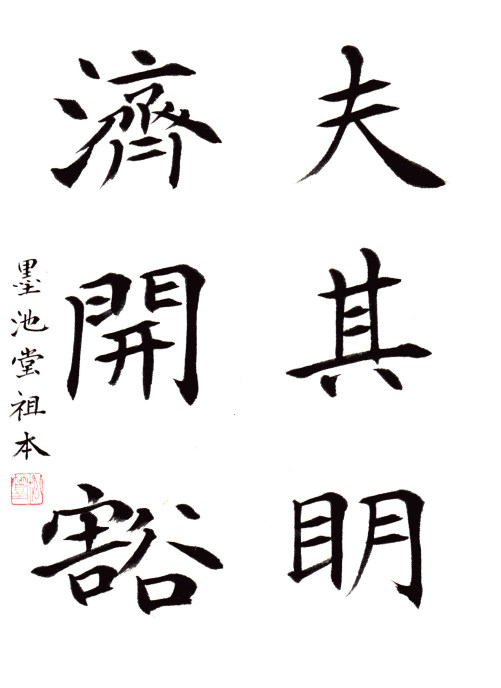 夫其明
濟開豁
墨池堂祖本